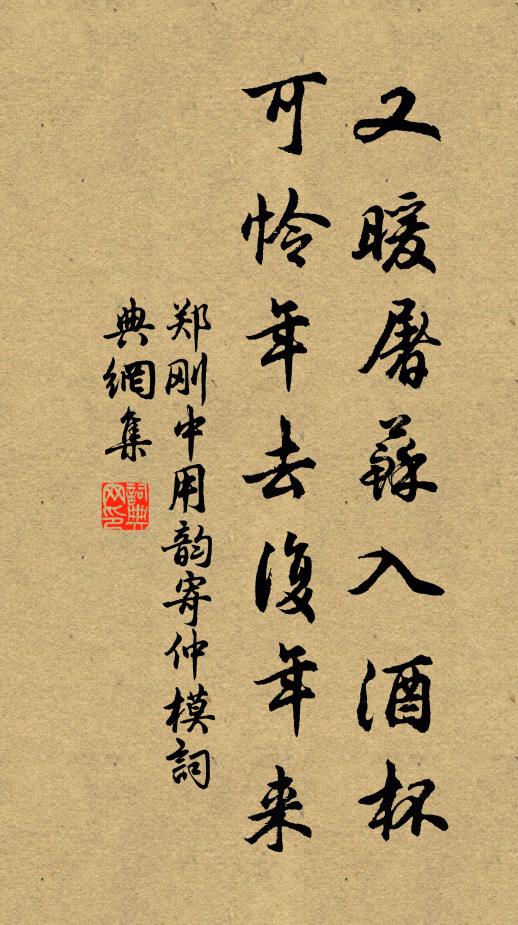 又暖屠蘇入酒杯
可怜年去復年来
郑刚中用韵寄仲模詞
典網集
詞典网印